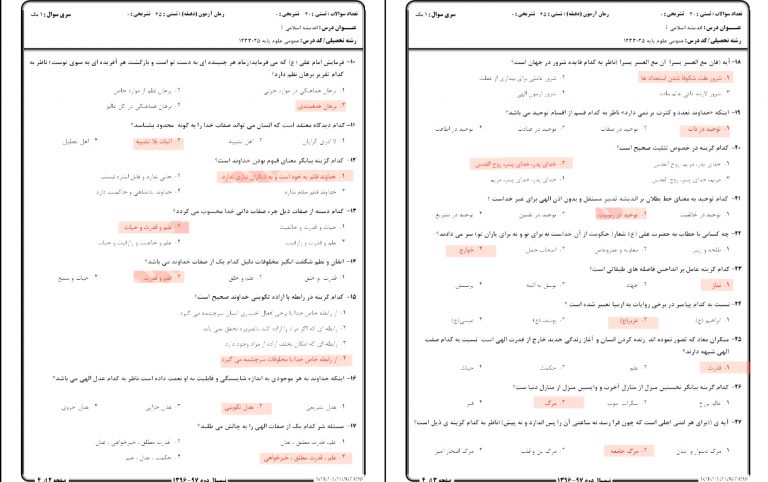 سری سوال: ۱ یک
زمان آزمون (دقیقه): تستی: ۴۵ تشریحی: ۰
تعداد سوالات: تستی: ۳۰ تشریحی: ۰
عنوان درس: اندیشه اسلامی ۱
رشته تحصیلی/کد درس: عمومی علوم پایه ۱۲۳۳۰۲۵
۱۰- فرمایش امام علی (ع) که می فرماید(زمام هر جنبنده ای به دست تو است و بازگشت هر آفریده ای به سوی توست) ناظر به کدام تقریر برهان نظم دارد؟
۱. برهان هماهنگی در موارد جزیی
۲. برهان نظم از موارد خاص
۳. برهان هدفمندی
۴. برهان هماهنگی در کل عالم
۱۱- کدام دیدگاه معتقد است که انسان می تواند صفات خدا را به گونه محدود بشناسد؟
۱. لا ادری گرایان
۲. اهل تشبیه
۳. اثبات بلا تشبیه
۴. اهل تعطیل
۱۲- کدام گزینه بیانگر معنای قیوم بودن خداوند است؟
۱. خداوند قائم به خود است و به دیگران نیازی ندارد
۲. جایی ندارد و قابل اشاره نیست
۳. خداوند قائم مقام ندارد
۴. خداوند پادشاهی و حاکمیت دارد
۱۳- کدام دسته از صفات ذیل جزء صفات ذاتی خدا محسوب می گردد؟
۱. حیات و قدرت و خالقیت
۲. علم و قدرت و حیات
۳. علم و قدرت و رازقیت
۴. علم و خالقیت و رازقیت و حیات
۱۴- اتقان و نظم شگفت انگیز مخلوقات دلیل کدام یک از صفات خداوند می باشد؟
۱. قدرت و خلق
۲. علم و خلق
۳. علم و قدرت
۴. حیات و سمع
۱۵- کدام گزینه در رابطه با اراده تکوینی خداوند صحیح است؟
۱. از رابطه خاص خدا با برخی افعال اختیاری انسان سرچشمه می گیرد
۲. رابطه ای که اگر مراد را اراده کند بالضروره تحقق نمی یابد
۳. رابطه ای که امکان تخلف اراده از مراد وجود دارد
۴. از رابطه خاص خدا با مخلوقات سرچشمه می گیرد
۱۶- اینکه خداوند به هر موجودی به اندازه شایستگی و قابلیت به او نعمت داده است ناظر به کدام عدل الهی می باشد؟
۱. عدل تشریعی
۲. عدل تکوینی
۳. عدل جزایی
۴. عدل اخروی
۱۷- مسئله شر کدام یک از صفات الهی را به چالش می طلبد؟
۱. علم، قدرت مطلق ، عدل
۲. قدرت مطلق ، خیرخواهی ، عدل
۳. علم ، قدرت مطلق ، خیرخواهی
۴. حکمت ، عدل ، علم
صفحه ۲ از ۴
نیمسال دوم ۹۷-۱۳۹۶
سری سوال: ۱ یک
زمان آزمون (دقیقه): تستی: ۴۵ تشریحی: ۰
تعداد سوالات: تستی: ۳۰ تشریحی: ۰
عنوان درس: اندیشه اسلامی ۱
رشته تحصیلی/کد درس: عمومی علوم پایه ۱۲۳۳۰۲۵
۱۸- آیه (فان مع العسر یسرا ان مع العسر یسرا) ناظر به کدام فایده شرور در جهان است؟
۱. شرور علت شکوفا شدن استعداد ها
۲. شرور عاملی برای بیداری از غفلت
۳. شرور لازمه ذاتی عالم ماده
۴. شرور آزمون الهی
۱۹- اینکه «خداوند تعدد و کثرت بر نمی دارد» ناظر به کدام قسم از اقسام توحید می باشد؟
۱. توحید در ذات
۲. توحید در صفات
۳. توحید در عبادت
۴. توحید در اطاعت
۲۰- کدام گزینه در خصوص تثلیث صحیح است؟
۱. خدای پدر، مریم، روح القدس
۲. خدای پدر، خدای پسر، روح القدس
۳. مریم، خدای پسر، روح القدس
۴. خدای پدر، خدای پسر، مریم
۲۱- کدام توحید به معنای خط بطلان بر اندیشه تدبیر مستقل و بدون اذن الهی برای غیر خداست ؟
۱. توحید در خالقیت
۲. توحید در ربوبیت
۳. توحید در تقنین
۴. توحید در تشریع
۲۲- چه کسانی با خطاب به حضرت علی (ع) شعار( حکومت از آن خداست نه برای تو و نه برای یاران تو) سر می دادند؟
۱. طلحه و زبیر
۲. معاویه و عمروعاص
۳. اصحاب جمل
۴. خوارج
۲۳- کدام گزینه عامل بر انداختن فاصله های طبقاتی است؟
۱. نماز
۲. جهاد
۳. توسل به ائمه
۴. پرستش
۲۴- نسبت به کدام پیامبر در برخی روایات به ارمیا تعبیر شده است؟
۱. ابراهیم (ع)
۲. عزیر(ع)
۳. یوسف(ع)
۴. عیسی(ع)
۲۵- منکران معاد که تصور نموده اند زنده کردن انسان و آغاز زندگی جدید خارج از قدرت الهی است نسبت به کدام صفت الهی شبهه دارند؟
۱. قدرت
۲. علم
۳. حکمت
۴. حیات
۲۶- کدام گزینه بیانگر نخستین منزل از منازل آخرت و واپسین منزل از منازل دنیا ست؟
۱. عالم برزخ
۲. سکرات موت
۳. مرگ
۴. قبر
۲۷- آیه ی ((برای هر امتی اجلی است که چون فرا رسد نه ساعتی آن را پس اندازد و نه پیش)) ناظر به کدام گزینه ی ذیل است؟
۱. مرگ دشوار و آسان
۲. مرگ جامعه
۳. مرگ تن و قلب
۴. مرگ افتخار آمیز
صفحه ۳ از ۴
نیمسال دوم ۹۷-۱۳۹۶